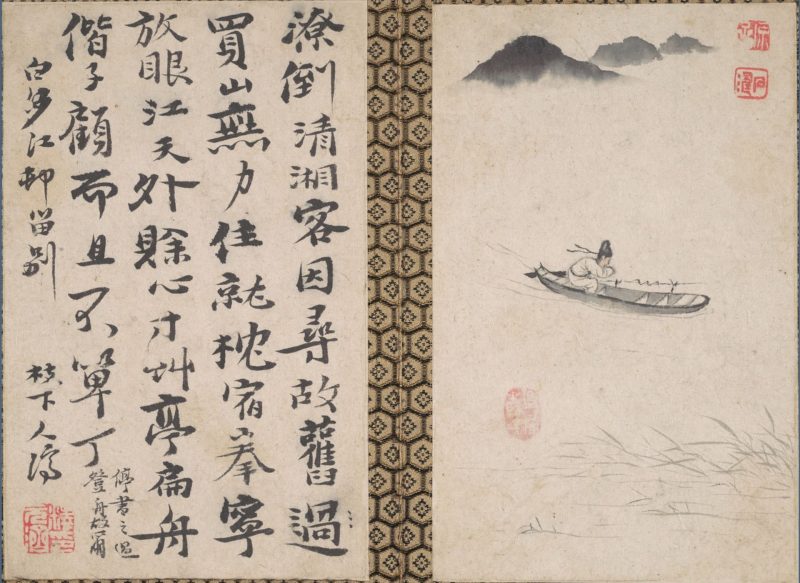 潦倒清湘客因尋故舊過
買山無力住就枕宿拳寧
放眼江天外賒心寸艸亭扁舟
偕子顧而且不單丁
書之
登舟故爾
白沙江邨留別
枝下人濟